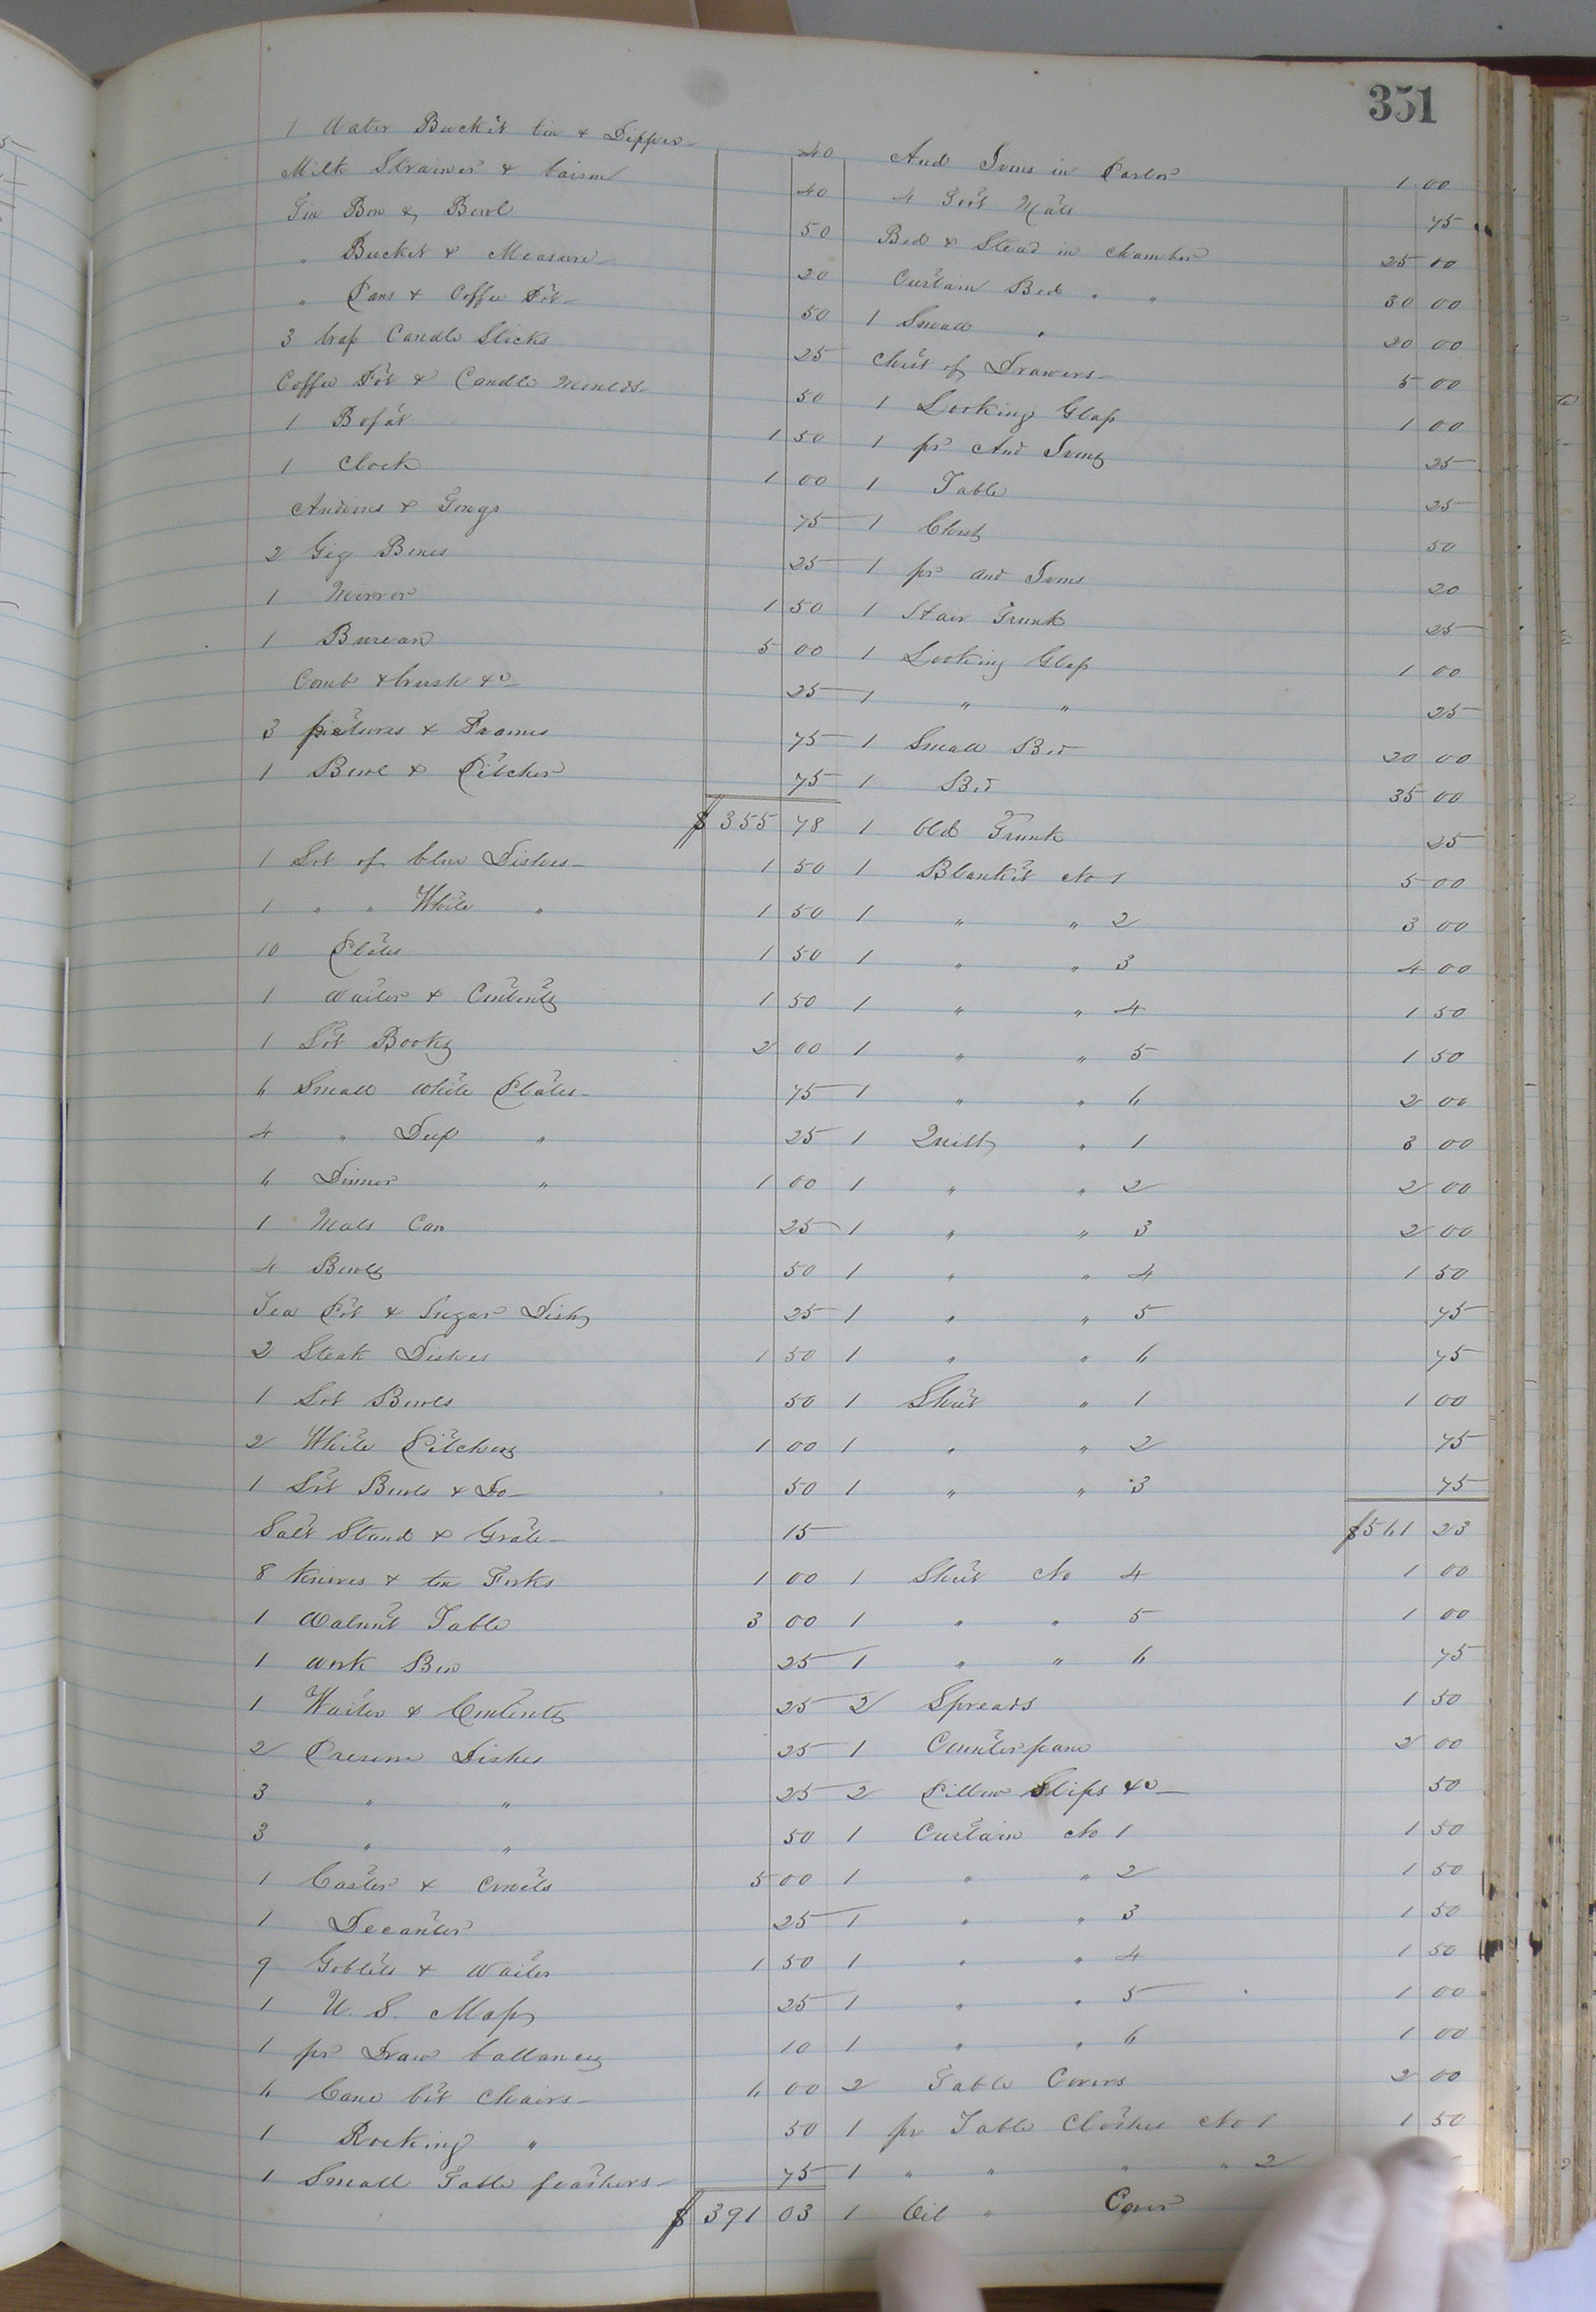 351
1 Water Bucket tin & Dipper 40
Milk Strainer & baisin 40
Tin Box & Bowl 50
" Bucket & Measure 20
" Pans & Coffee Pot 50
3 brass Candle Sticks 25
Coffee Pot & Candle Moulds 50
1 Bofat 1 50
1 Clock 1 00
Andirons & Tongs 75
2 Gig Bows 25
1 Mirror 1 50
1 Bureau 5 00
Comb & brush &c 25
3 pictures & Frames 75
1 Bowl & Pitcher 75
$355 78
1 Lot of blue Dishes 1 50
1 " " White " 1 50
10 Plates 1 50
1 Waiter & Contents 1 50
1 Lot Books 2 00
6 Small White Plates 75
4 " Deep " 25
6 Dinner " 1 00
1 Mols Can 25
4 Bowls 50
Tea Pot & Sugar Dish 25
2 Steak Dishes 1 50
1 Lot Bowls 50
2 White Pitchers 1 00
1 Lot Bowls & Do 50
Salt Stand & Grate 15
8 Knives & ten Forks 1 00
1 Walnut Table 3 00
1 Work Box 25
1 Waiter & Contents 25
2 Preserve Dishes 25
3 " " 25
3 " " 50
1 Caster & Cruets 5 00
1 Decanter 25
9 Goblets & Waiter 1 50
1 U. S. Map 25
1 pr Draw ballances 10
6 Cane bot Chairs 6 00
1 Rocking " 50
1 Small Table feathers 75
$391 03
And Irons in Parlor 1 00
4 Foot Mats 75
Bed & Stead in chamber 25 00
Curtain Bed " " 30 00
1 Small " 20 00
Chest of Drawers 5 00
1 Looking Glass 1 00
1 pr And Irons 25
1 Table 25
1 Chest 50
1 pr and Irons 20
1 Stair Trunk 25
1 Looking Glass 1 00
1 " " 25
1 Small Bed 20 00
1 Bed 35 00
1 Old Trunk 25
1 Blanket No 1 5 00
1 " " 2 3 00
1 " " 3 4 00
1 " " 4 1 50
1 " " 5 1 50
1 " " 6 2 00
1 Quilt " 1 3 00
1 " " 2 2 00
1 " " 3 2 00
1 " " 4 1 50
1 " " 5 75
1 " " 6 75
1 Sheet " 1 1 00
1 " " 2 75
1 " " 3 75
$561 23
1 Sheet No 4 1 00
1 " " 5 1 00
1 " " 6 75
2 Spreads 1 50
1 Counterpane 2 00
2 Pillow Slips &c 50
1 Curtain No 1 1 50
1 " " 2 1 50
1 " " 3 1 50
1 " " 4 1 50
1 " " 5 1 00
1 " " 6 1 00
2 Table Covers 2 00
1 pr Table Clothes No 1 1 50
1 " " " " 2
1 Oil " Cover